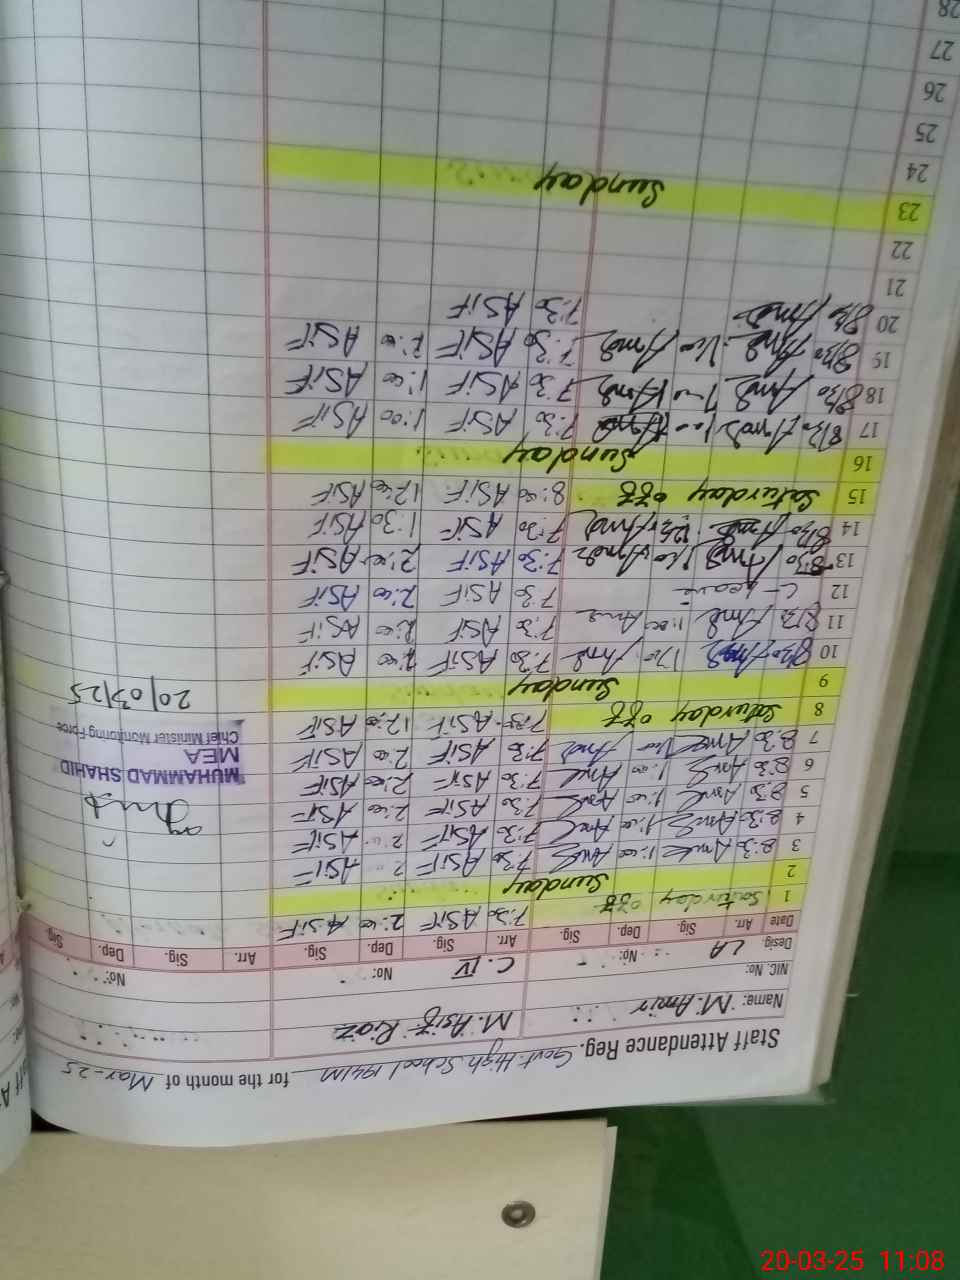 Staff Attendance Reg. Govt. High School 194/M for the month of Mar-25
Name: M. Amir M. Asif Riaz
NIC. No:
Desig. LA No: C. IV No: No:
Date Arr. Sig. Dep. Sig. Arr. Sig. Dep. Sig. Arr. Sig. Dep. Sig.
1 Saturday off 7:30 ASiF 2:00 ASiF
2 Sunday
3 8:30 1:00 7:30 ASiF 2 ASiF
4 8:30 1:00 7:30 ASiF 2 ASiF
5 8:30 1:00 7:30 ASiF 2:00 ASiF
6 8:30 1:00 7:30 ASiF 2:00 ASiF
7 8:30 1:00 7:30 ASiF 2:00 ASiF
8 Saturday off 7:30 ASiF 12:00 ASiF
9 Sunday
10 8:30 1:00 7:30 ASiF 2:00 ASiF
11 8:30 1:00 7:30 ASiF 2:00 ASiF
12 C-leave 7:30 ASiF 2:00 ASiF
13 8:30 1:00 7:30 ASiF 2:00 ASiF
14 8:30 7:30 ASiF 1:30 ASiF
15 Saturday off 8:00 ASiF 12:00 ASiF
16 Sunday
17 8:30 1:00 7:30 ASiF 1:00 ASiF
18 8:30 1:00 7:30 ASiF 1:00 ASiF
19 8:30 1:00 7:30 ASiF 2:00 ASiF
20 8:30 7:30 ASiF
21
22
23 Sunday
24
25
26
27
28
MUHAMMAD SHAHID
MEA
Chief Minister Monitoring Force
20/03/25
20-03-25 11:08